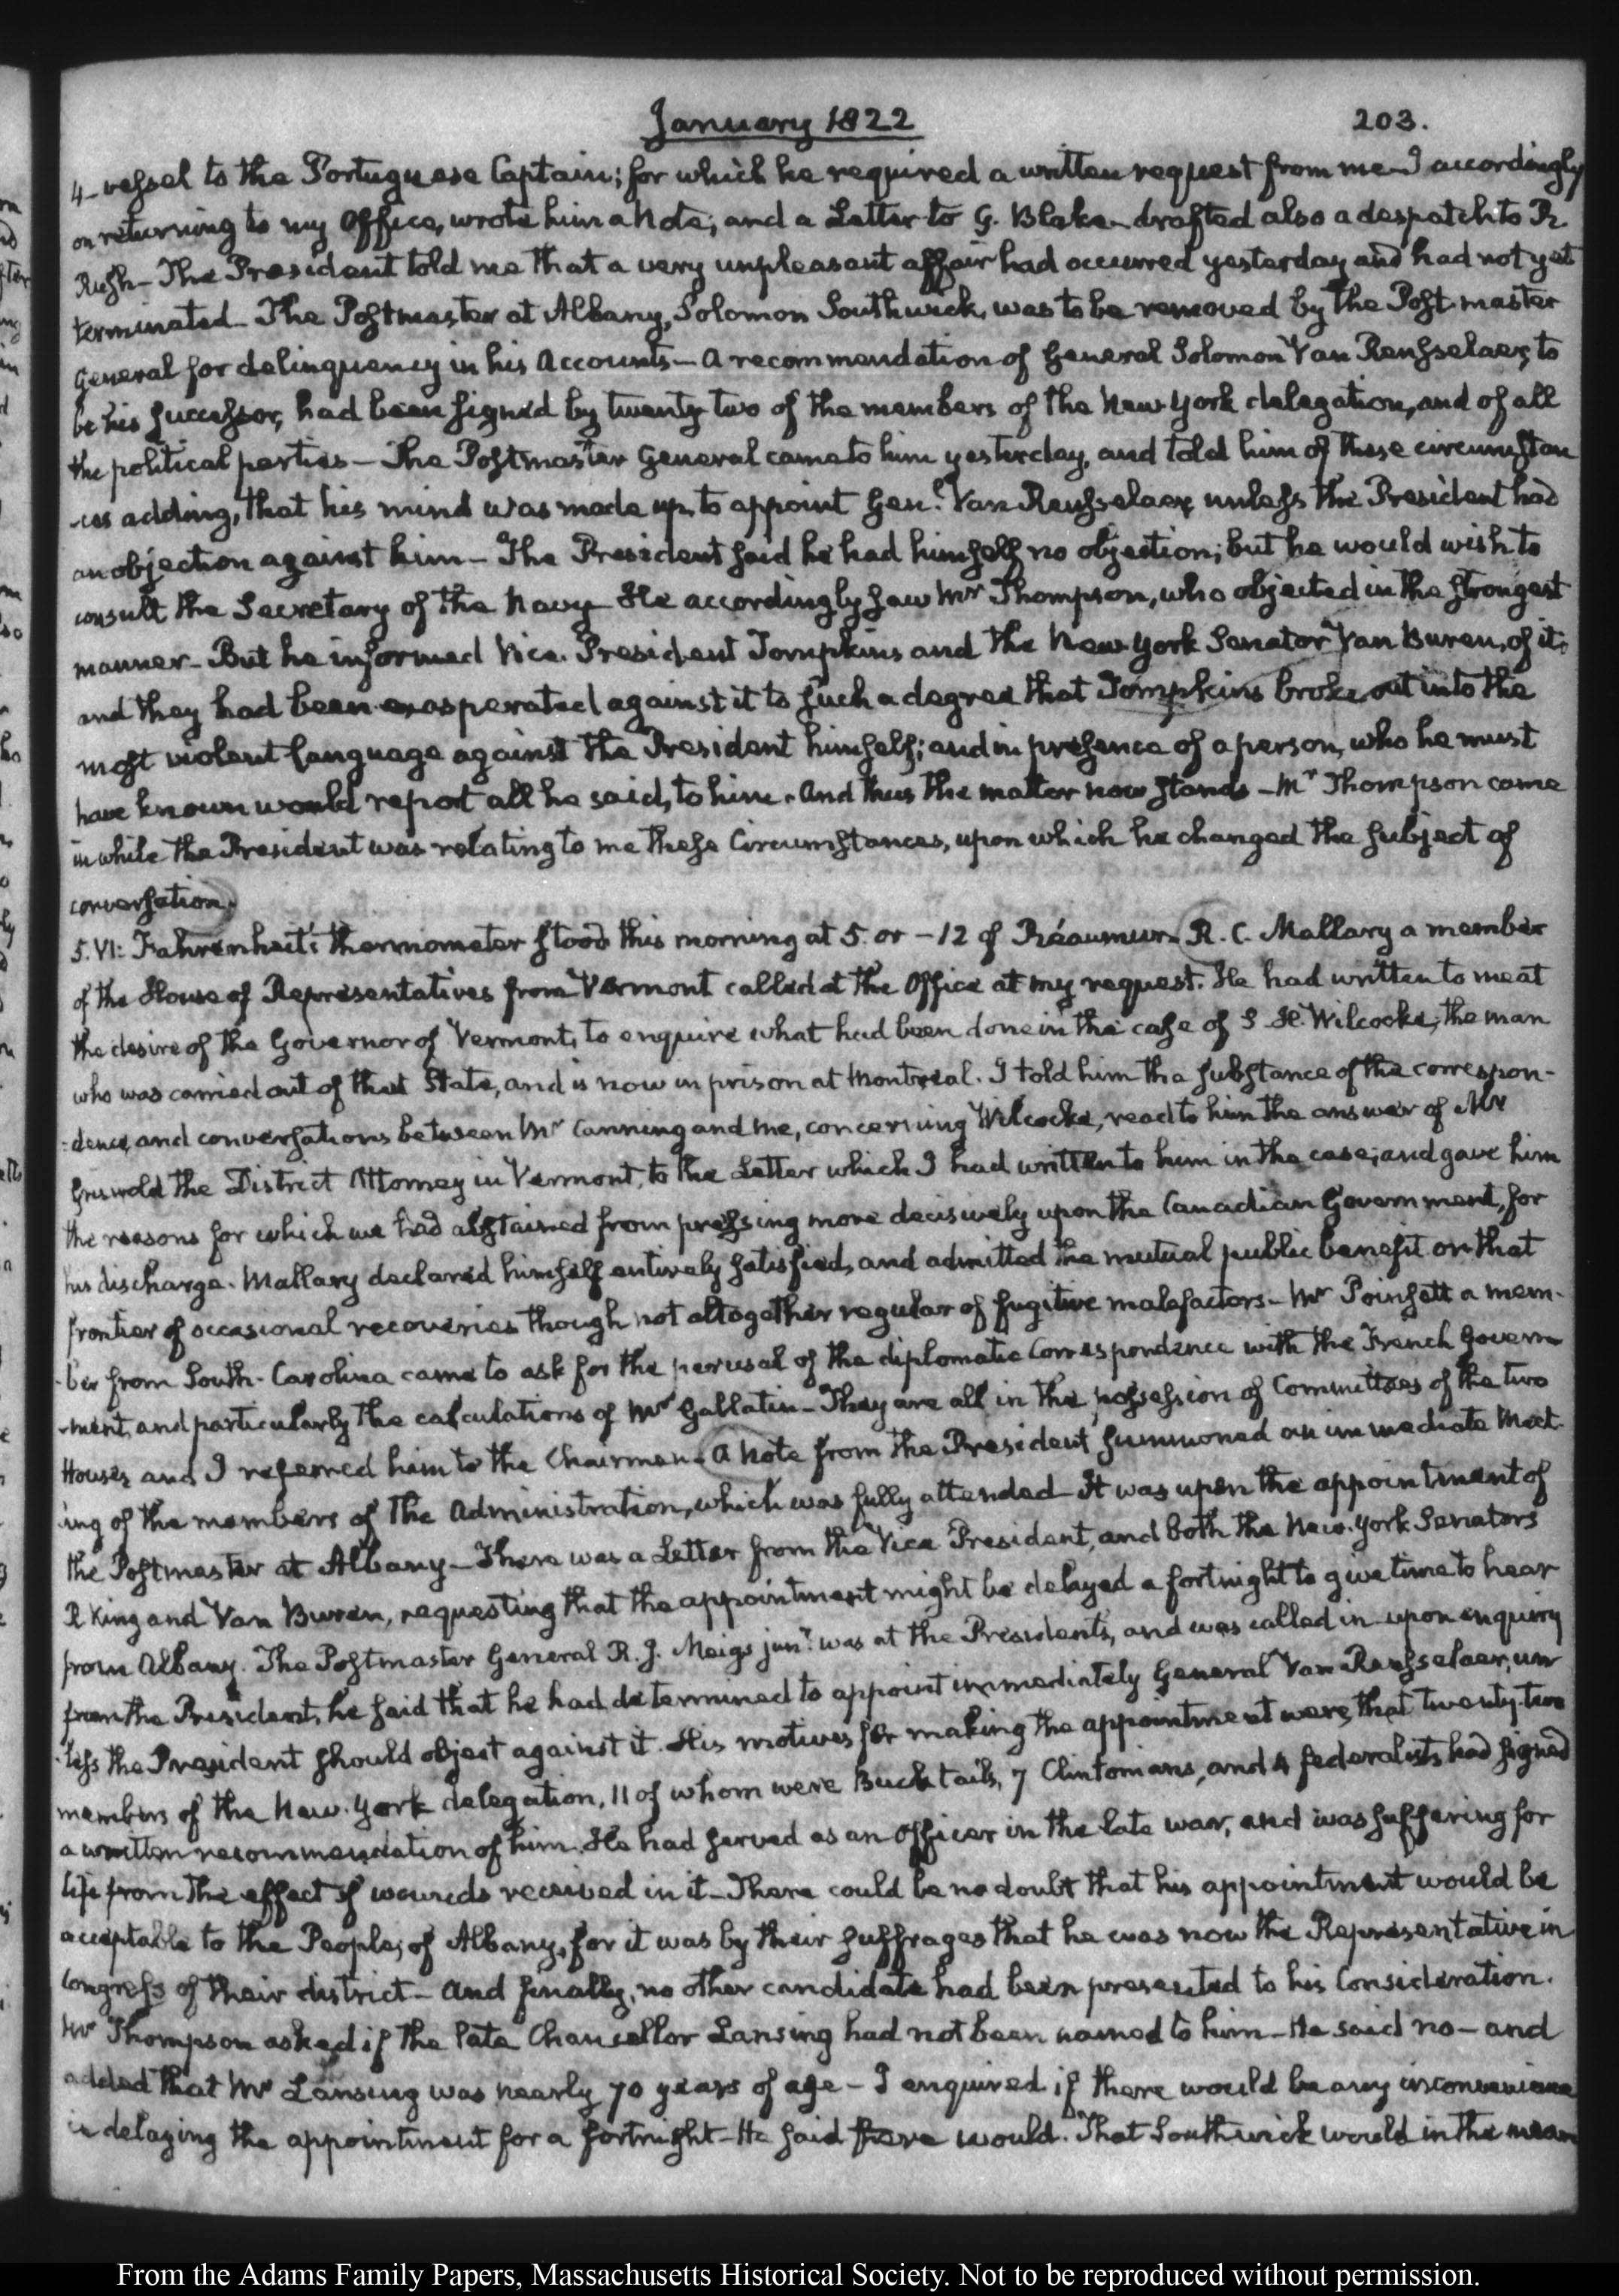 January 1822
203.
4- vessel to the Portuguese Captain; for which he required a written request from me- I accordingly
on returning to my Office, wrote him a Note; and a Letter to G. Blake- drafted also a despatch to R.
Rush- The President told me that a very unpleasant affair had occurred yesterday and had not yet
terminated- The Postmaster at Albany, Solomon Southwick, was to be removed by the Post-master
General for delinquency in his Accounts- A recommendation of General Solomon Van Rensselaer, to
be his successor, had been signed by twenty two of the members of the New-York delegation, and of all
the political parties- The Postmaster General came to him yesterday, and told him of these circumstan
-ces adding, that his mind was made up, to appoint Genl. Van Rensselaer, unless the President had
an objection against him- The President said he had himself no objection; but he would wish to
consult the Secretary of the Navy- He accordingly saw Mr Thompson, who objected in the strongest
manner- But he informed Vice-President Tompkins and the New-York Senator Van Buren, of it;
and they had been exasperated against it to such a degree that Tompkins broke out into the
most violent language against the President himself; and in presence of a person, who he must
have known would report all he said, to him. And thus the matter now stands- Mr Thompson came
in while the President was relating to me these Circumstances, upon which he changed the subject of
conversation.
5. VI: Fahrenheit's thermometer stood this morning at 5. or -12 of Réaumur. R. C. Mallary a member
of the House of Representatives from Vermont called at the Office at my request. He had written to me at
the desire of the Governor of Vermont, to enquire what had been done in the case of S. H. Wilcocke, the man
who was carried out of that State, and is now in prison at Montreal. I told him the substance of the correspon-
-dence, and conversations between Mr Canning and me, concerning Wilcocke, read to him the answer of Mr
Griswold the District Attorney in Vermont, to the Letter which I had written to him in the case; and gave him
the reasons for which we had abstained from pressing more decisively upon the Canadian Government, for
his discharge. Mallary declared himself entirely satisfied, and admitted the mutual public benefit on that
frontier of occasional recoveries though not altogether regular of fugitive malefactors- Mr Poinsett a mem-
-ber from South-Carolina came to ask for the perusal of the diplomatic Correspondence with the French Govern
-ment, and particularly the calculations of Mr Gallatin- They are all in the possession of Committees of the two
Houses, and I referred him to the Chairmen. A Note from the President summoned an immediate Meet-
-ing of the members of the Administration, which was fully attended- It was upon the appointment of
the Postmaster at Albany- There was a Letter from the Vice President, and both the New-York Senators
R King and Van Buren, requesting that the appointment might be delayed a fortnight to give time to hear
from Albany. The Postmaster General R. J. Meigs junr. was at the President's, and was called in- upon enquiry
from the President, he said that he had determined to appoint immediately General Van Rensselaer, un
-less the President should object against it. His motives for making the appointment were, that twenty-two
members of the New-York delegation, 11 of whom were Bucktails, 7 Clintonians, and 4 federalists, had signed
a written recommendation of him. He had served as an Officer in the late war, and was suffering for
life from the effect of wounds received in it- There could be no doubt that his appointment would be
acceptable to the People, of Albany, for it was by their suffrages that he was now the Representative in
Congress of their district- And finally, no other candidate had been presented to his Consideration.
Mr Thompson asked if the late Chancellor Lansing had not been named to him- He said no- and
added that Mr Lansing was nearly 70 years of age- I enquired if there would be any inconvenience
in delaying the appointment for a fortnight- He said there would. That Southwick would in the mean
From the Adams Family Papers, Massachusetts Historical Society. Not to be reproduced without permission.